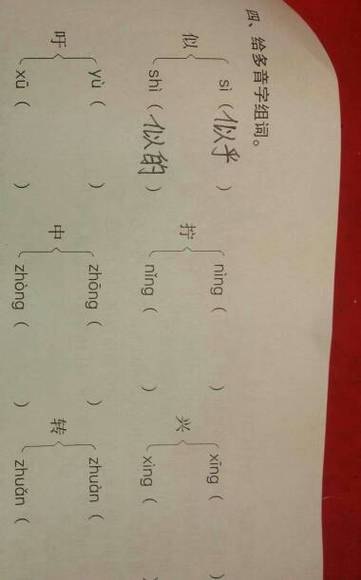 四、给多音字组词。
sì (似乎) níng ( ) xīng ( )
似 拧 兴
shì (似的) nǐng ( ) xìng ( )
yù ( ) zhōng ( ) zhuàn (
吁 中 转
xū ( ) zhòng ( ) zhuǎn (